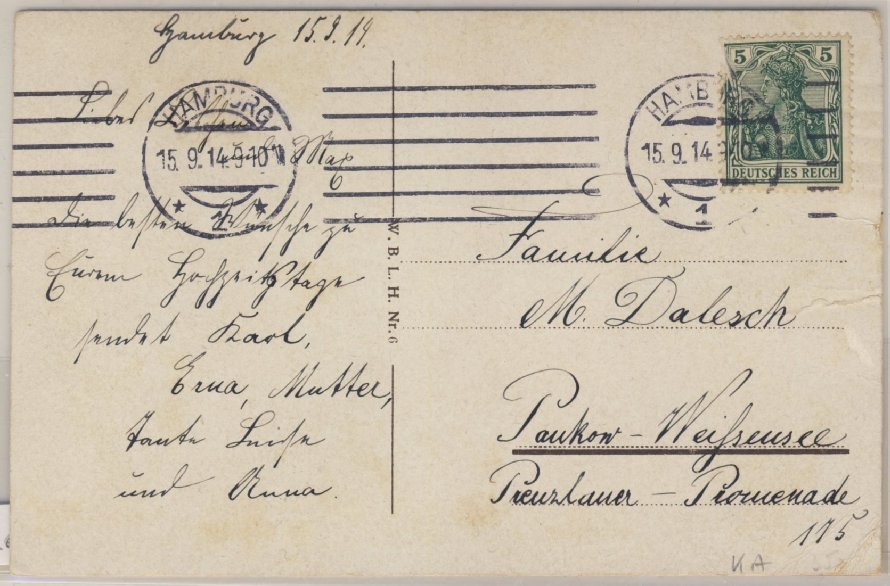 Hamburg 15.9.14.
Liebes
und Max
die besten Wünsche zu
Eurem Hochzeitstage
sendet Karl,
Erna, Mutter,
Tante Luise
und Anna.
HAMBURG
15.9.14.9-10V
* 1 *
W. B. L. H. Nr. 6
HAMBURG
15.9.14.9-10V
* 1
5 5
DEUTSCHES REICH
Familie
M. Dalesch
Pankow - Weißensee
Prenzlauer - Promenade
175
KA